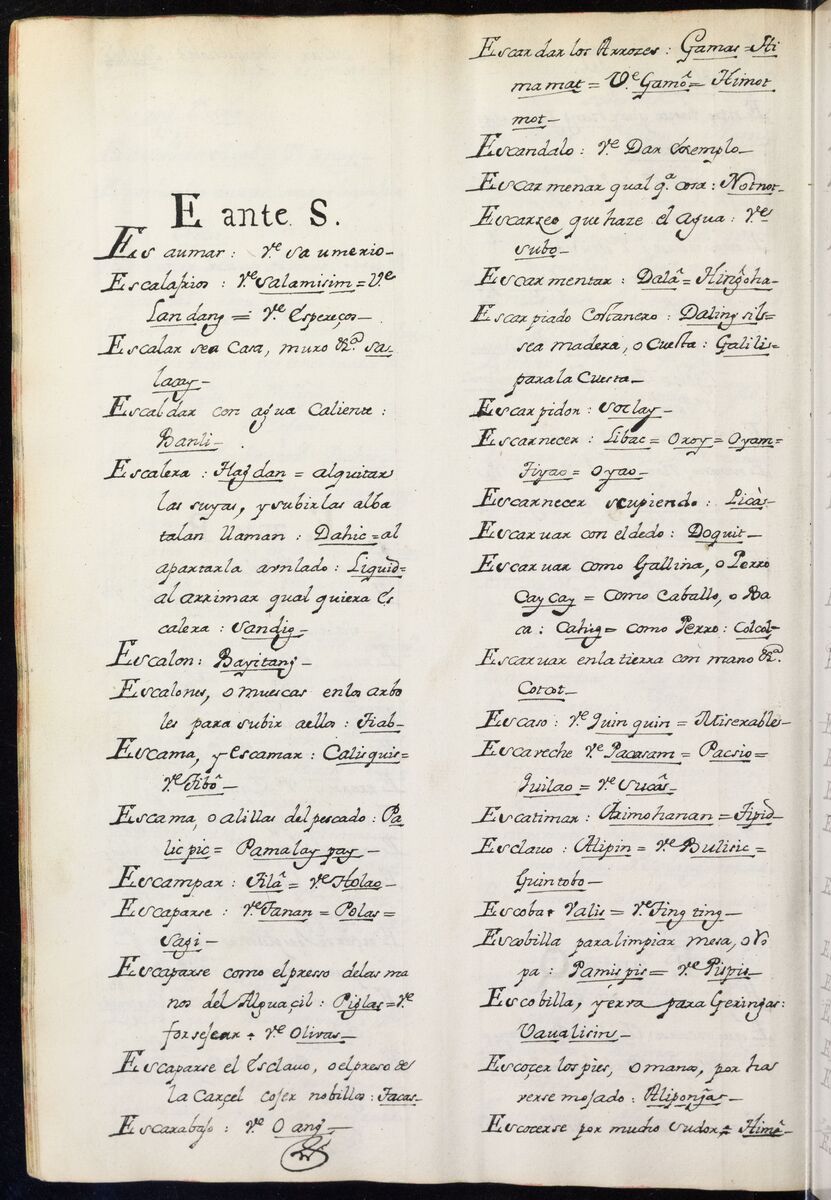 E ante S.
Es aumar: Ve. saumerio-
Escalofrios: Ve. salamisim= Ve.
Landang= Ve. espereços-
Escalar sea Casa, muro &a. sa-
lacay-
Escaldar con agua Caliente:
Banli-
Escalera: Hagdan= al quitar
las suyas, y subirlas al ba
talan llaman: Dahic= al
apartarla avnlado: Liquid=
al arrimar qual quiera és
calera: sandig-
Escalon: Bayitang-
Escalones, o muescas en los arbo
les para subir aellos: Tiab-
Escama, y escamar: Calisquis=
Ve. Tibô-
Escama, o alillas del pescado: Pa
licpic= Pamalaypay-
Escampar: Tilâ= Ve. Holao-
Escaparse: Ve. Tanan= Polas=
sagi-
Escaparse como el presso delas ma
nos del Alguaçil: Piglas= Ve.
forsejear + Ve. Oliras-
Escaparse el esclavo, o el preso de
la Carçel coser nobillos: Tacas-
Escarabajo: Ve. Oang-
Escardar los Arrozes: Gamas= Hi
mamat= Ve. Gamô= Himot
mot-
Escandalo: Ve. Dar exemplo-
Escarmenar qual qa. cosa: Notnot-
Escarzeo que haze el agua: Ve.
subo-
Escarmentar: Dalâ= Hinĝoha-
Escarpiado Costanero: Dalingsils=
sea madera, o Cuesta: Galilis-
para la Cuesta-
Escarpidor: soclay-
Escarnecer: Libac= Oroy= Oyam=
Tiyao= oyao-
Escarnecer scupiendo: Picàs-
Escaruar con el dedo: Doquit-
Escaruar como Gallina, o Perro
Caycay= como Caballo, o Ba
ca: Cahig= como Perro: Colcol-
Escaruar en la tierra con mano &a.
Cotcot-
Escaso: Ve. Guinguin= Miserable-
Escaveche Ve. Pacasam= Pacsio=
Guilao= Ve. sucâs-
Escatimar: Arimohanan= Tipid-
Esclavo: Alipin= Ve. Bulisic=
Guintobo-
Escoba + Valis= Ve. Tingting-
Escobilla para limpiar mesa, o Ro
pa: Pamispis= Ve. Pispis-
Escobilla, yerva para Geringas:
Vaualisin-
Escoçer los pies, o manos, por ha
verse mojado: Aliponĝas-
Escocerse por mucho sudor + Himâ-